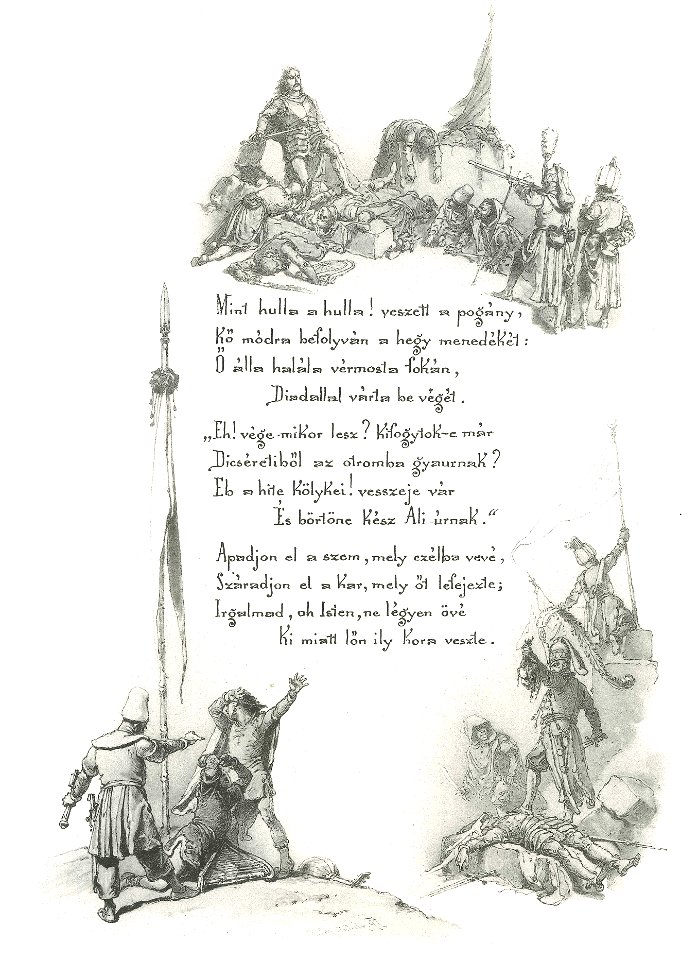 Mint hulla a hulla! veszett a pogány,
Kő módra befolyván a hegy menedékét:
Ő álla halála vérmosta fokán,
Diadallal várta be végét.
„Eh! vége mikor lesz? kifogytok-e már
Dicséretiből az otromba gyaurnak?
Eb a hite kölykei! vesszeje vár
És börtöne kész Ali úrnak.“
Apadjon el a szem, mely czélba vevé,
Száradjon el a kar, mely őt lefejezte;
Irgalmad, oh Isten, ne légyen övé
Ki miatt lőn ily kora veszte.